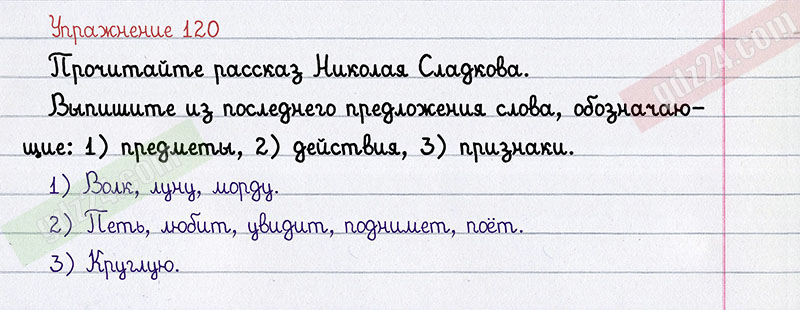 Упражнение 120
Прочитайте рассказ Николая Сладкова.
Выпишите из последнего предложения слова, обозначаю-
щие: 1) предметы, 2) действия, 3) признаки.
1) Волк, луну, морду.
2) Петь, любит, увидит, поднимет, поёт.
3) Круглую.
gdz24.com
gdz24.com